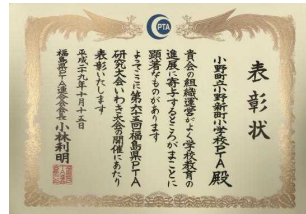 PTA
表彰状
小野町立小野新町小学校PTA殿
貴会の組織運営がよく学校教育の
進展に寄与するところがまことに
顕著なものがあります
よってここに第六十五回福島県PTA
研究大会いわき大会の開催にあたり
表彰いたします
平成二十九年十月十五日
福島県PTA連合会会長 小林利明